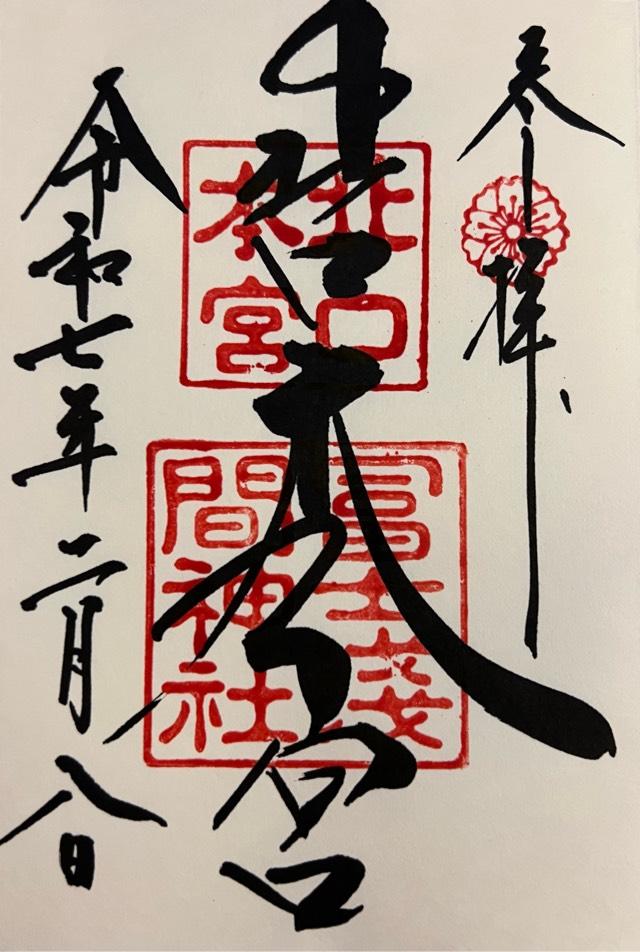 奉拝
北口本宮
北口
本宮
冨士浅
間神社
令和七年二月八日